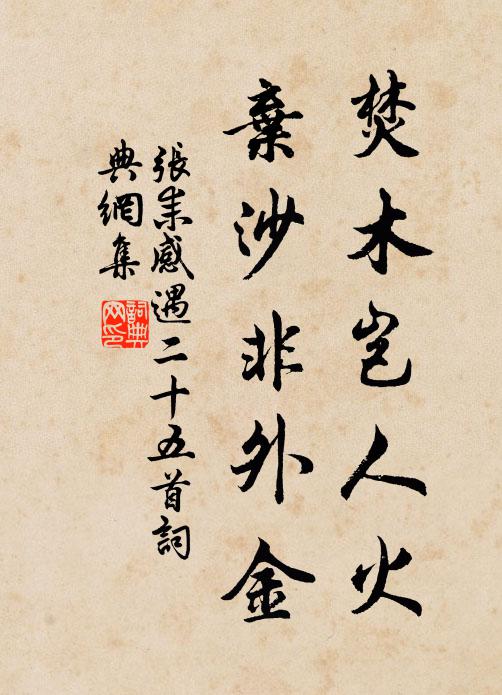 焚木岂人火
棄沙非外金
張耒感遇二十五首詞
典網集
詞典
网印